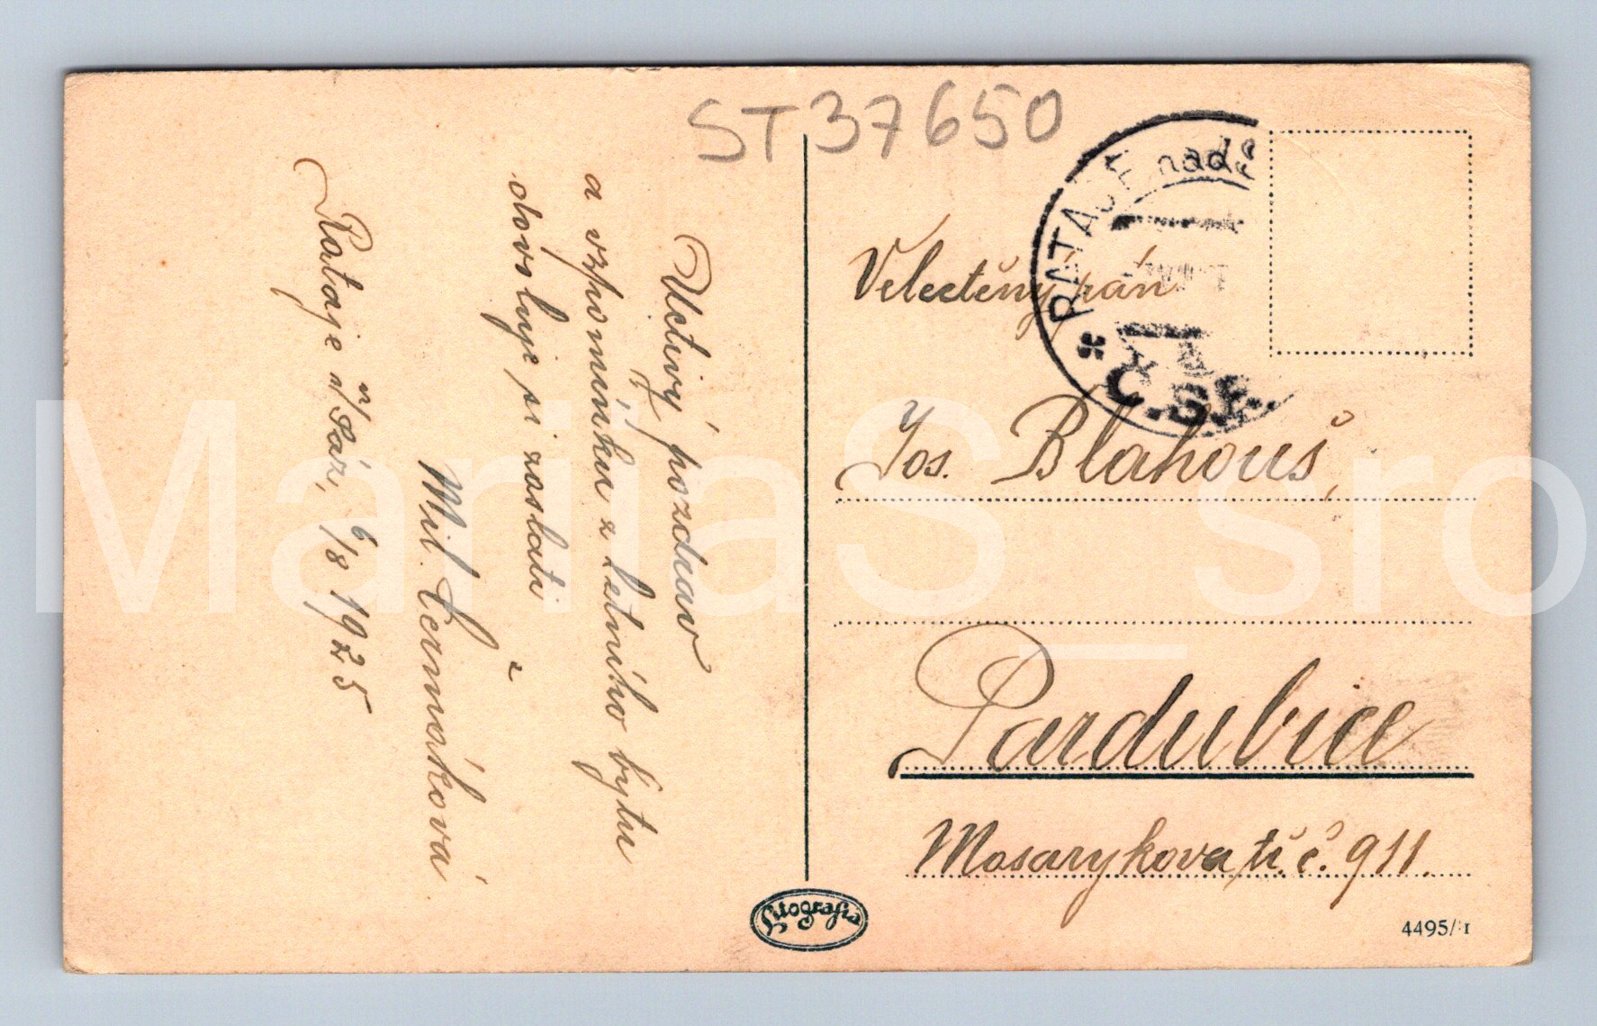 ST37650
Uctivý pozdrav
a vzpomínku z letního bytu
dovoluje si zaslati
Mil. Čermáková
Rataje n/Sáz, 6/8 1925
RATAJE nad S
Č.S.R.
Velectěný pán
Jos. Blahouš,
Pardubice
Masarykova tř. č. 911.
4495/
MarijaS_sro